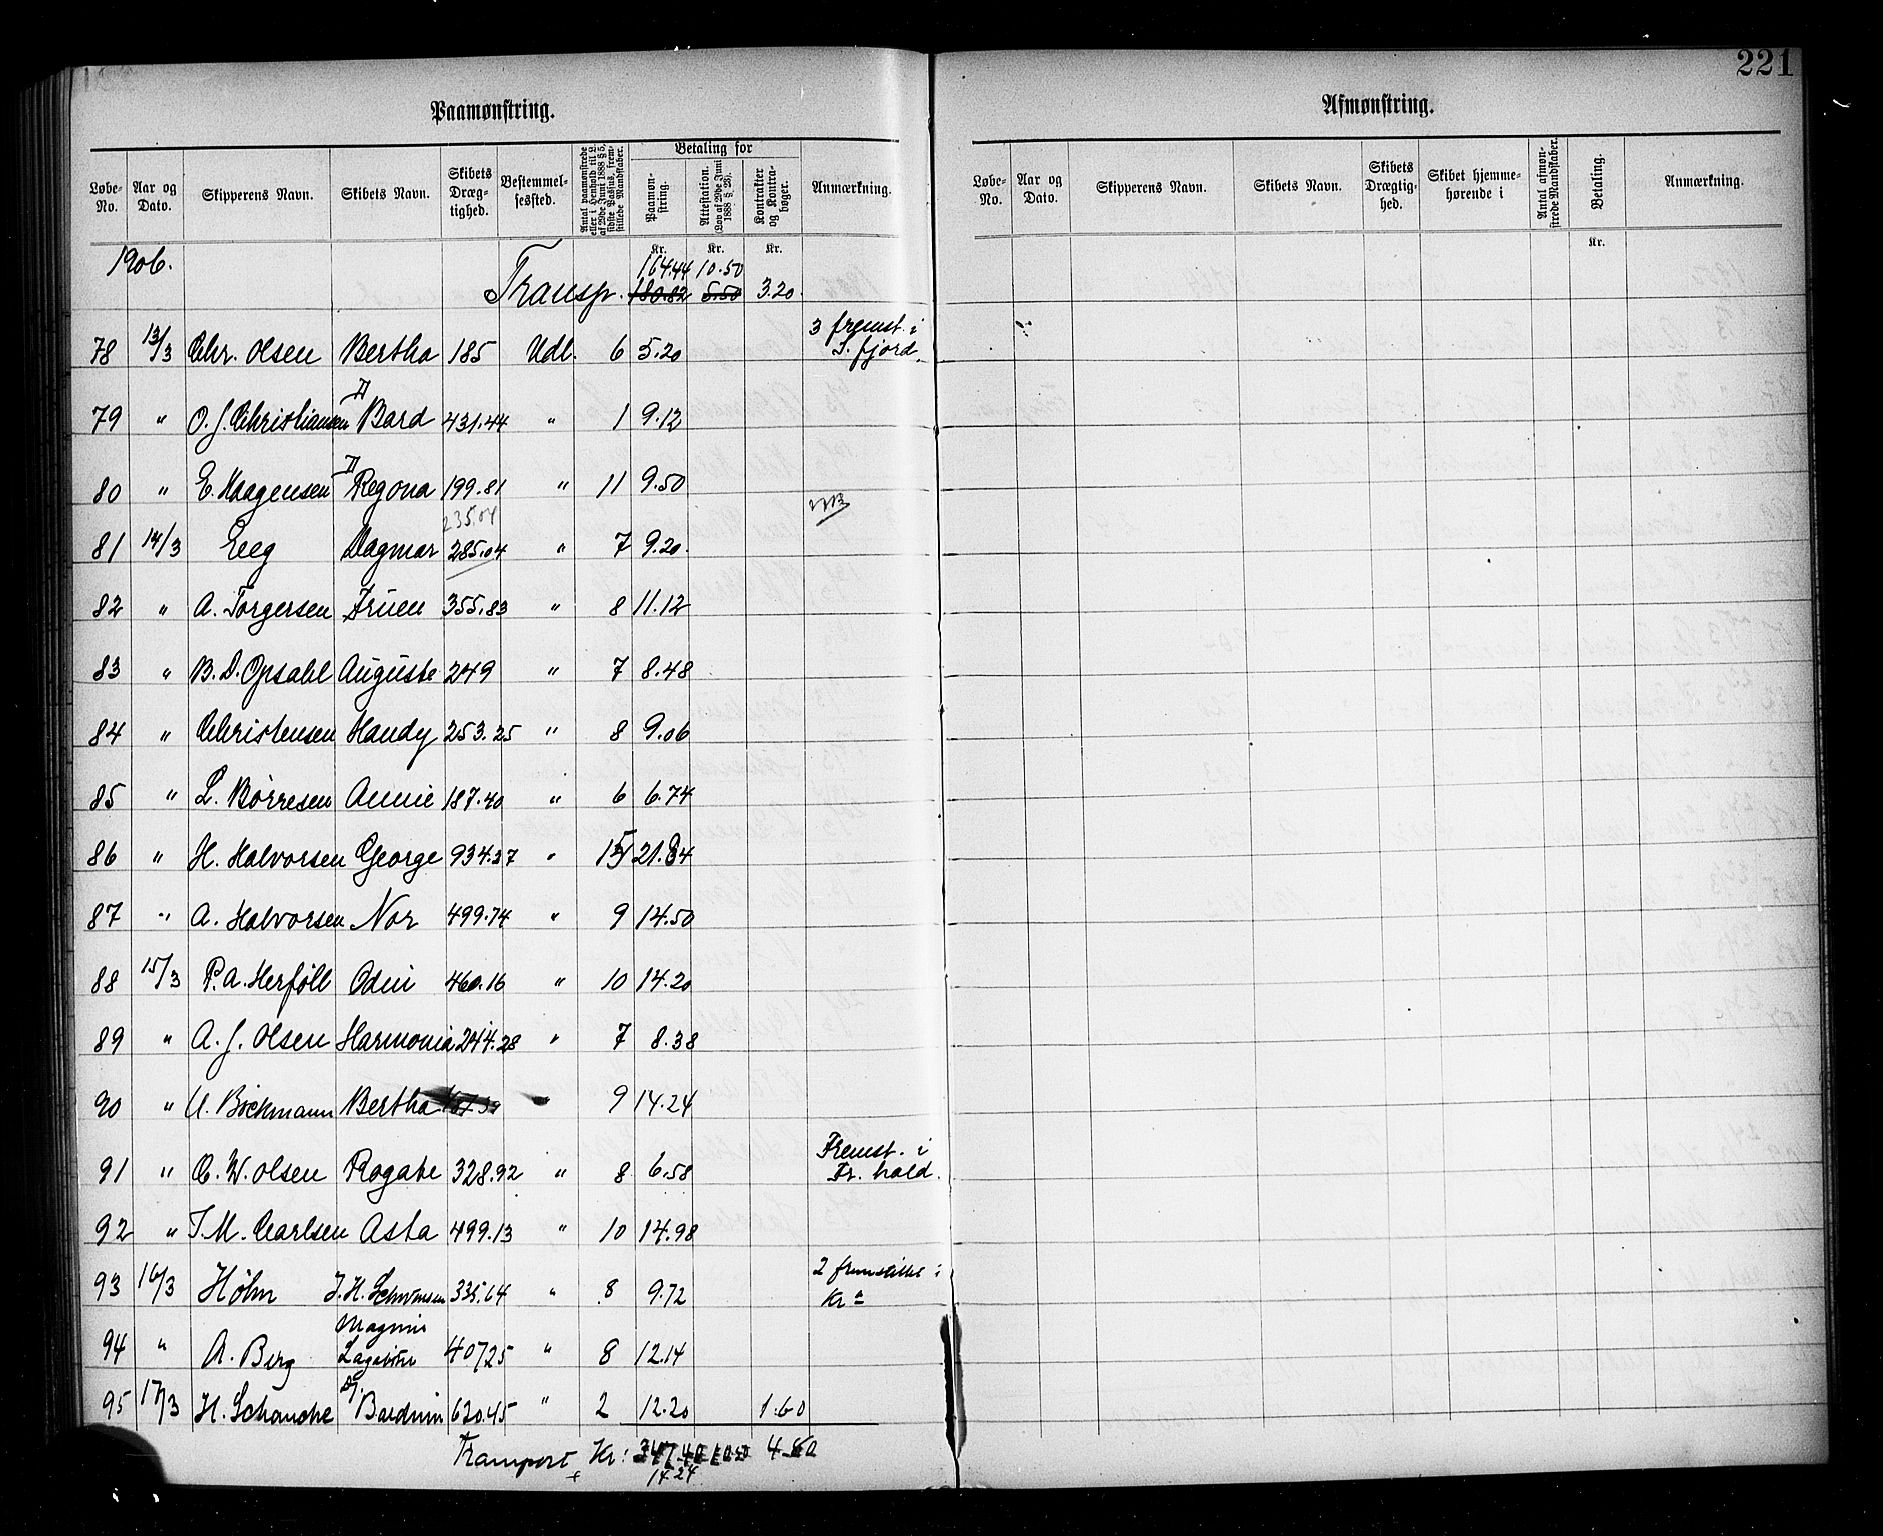 221
Paamønstring.
Løbe-No. Aar og Dato. Skipperens Navn. Skibets Navn. Skibets Dræg-tighed. Bestemmel-sessted. Antal paamønstrede eller i Henhold til L. af 29de Juni 1888 § 5, sidste Passus, frem-stillede Mandskaber. Betaling for Paamøn-string. Attestation. (Lov af 29de Juni 1888 § 28). Kontrakter og Kontra-bøger. Anmærkning.
Kr. Kr. Kr.
1906. 164.44 10.50
Transp. 180.82 5.50 3.20
78 13/3 Chr. Olsen Bertha 185 Udl. 6 5.20 3 fremst. i S. fjord.
79 " O. J. Christiansen D Bard 431.44 " 1 9.12
80 " E. Haagensen D Regona 199.81 " 11 9.50
235.04
81 14/3 Eeg Dagmar 285.04 " 7 9.20.
82 " A. Torgersen Fruen 355.83 " 8 11.12
83 " B. D. Opsahl Auguste 249 " 7 8.48
84 " Christensen Handy 253.25 " 8 9.06
85 " L. Børresen Annie 187.40 " 6 6.74
86 " H. Halvorsen George 934.37 " 15 21.84
87 " A. Halvorsen Nor 499.74 " 9 14.50
88 15/3 P. A. Herføll Odin 460.16 " 10 14.20
89 " A. J. Olsen Harmonia 244.28 " 7 8.38
90 " A. Bøckmann Bertha " 9 14.24
91 " C. W. Olsen Rogate 328.92 " 8 6.58 Fremst. i Fr. hald.
92 " T. M. Carlsen Asta 499.13 " 10 14.98
93 16/3 Høhn J. H. Schwensen 335.64 " 8 9.72 2 fremstillet i Kr a
94 " A. Berg Magnus Lagabøte 407.25 " 8 12.14
95 17/3 H. Schanche D/ Bardwin 620.45 " 2 12.20 1.60
Transport Kr: 347.40 10.50 4.80
14.24
Afmønstring.
Løbe-No. Aar og Dato. Skipperens Navn. Skibets Navn. Skibets Drægtig-hed. Skibet hjemme-hørende i Antal afmøn-strede Mandskaber. Betaling. Anmærkning.
Kr.